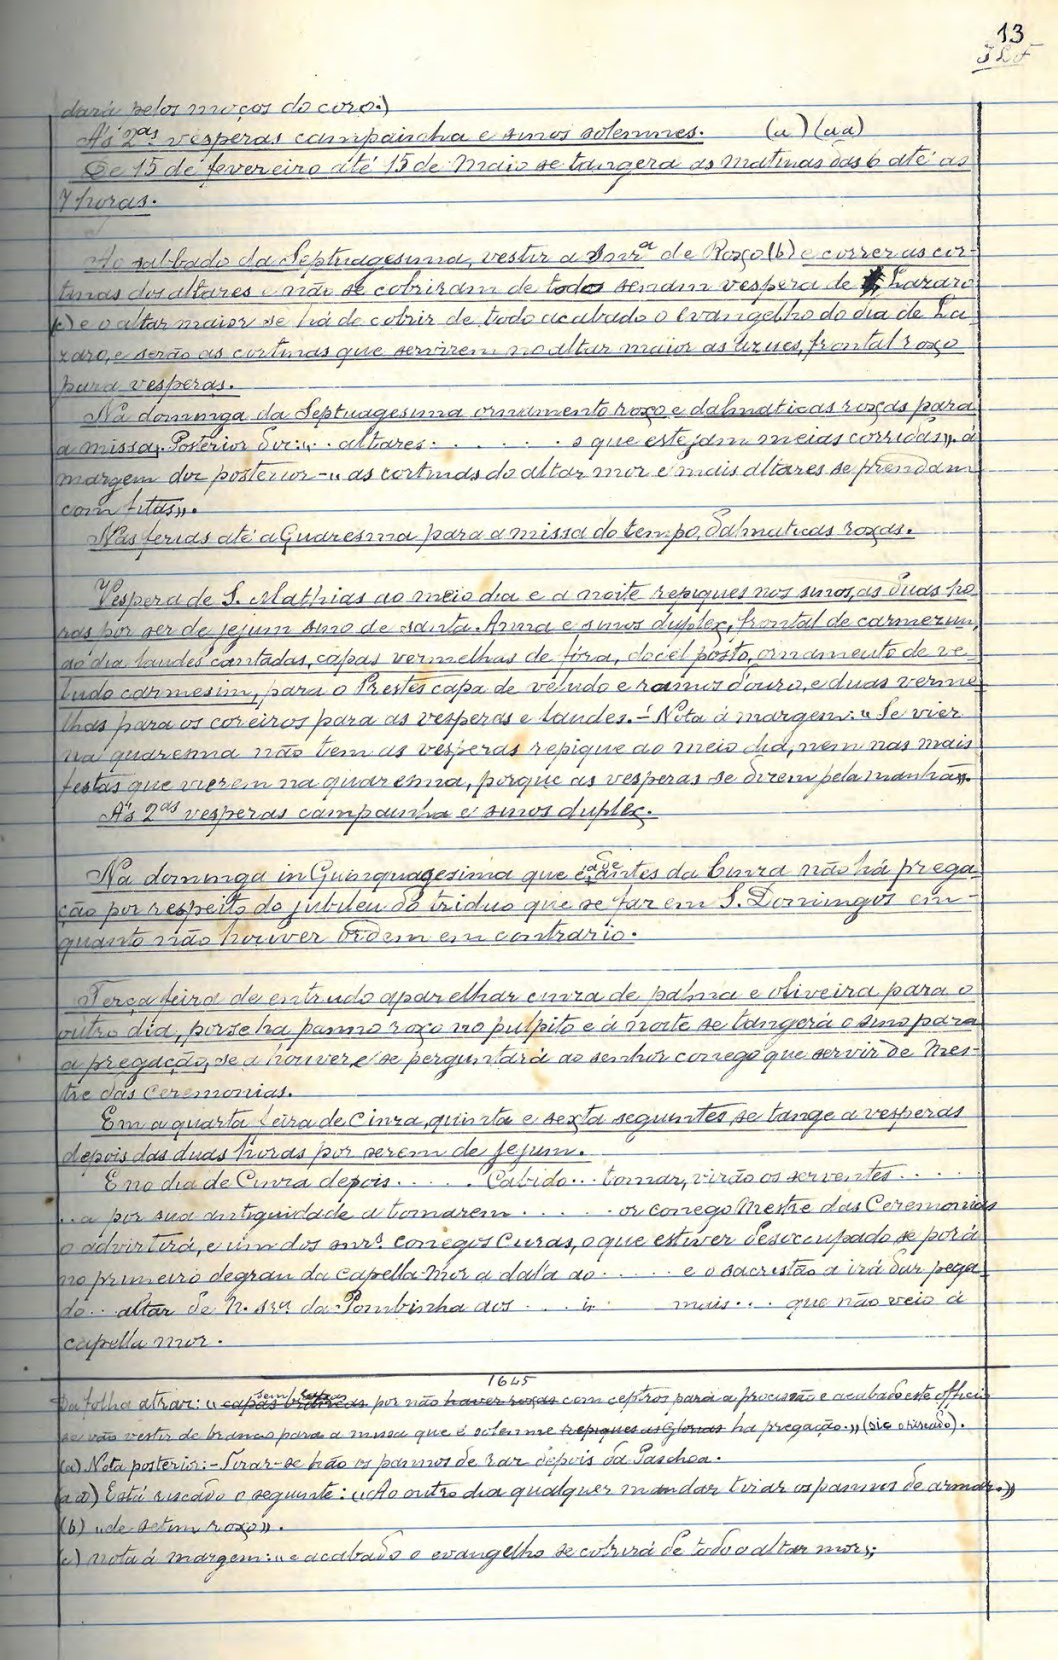 13
dará pelos moços do coro.)
Ás 2as vesperas campainha e sinos solemnes. (a) (aa)
De 15 de fevereiro até 15 de Maio se tangerá as matinas das 6 até as
7 horas.
Ao sabbado da Septuagesima, vestir a Snra de Roxo (b) e correr as cor-
tinas dos altares e não se cobriram de todo senam vespera de Lazaro
(c) e o altar maior se há de cobrir de todo acabado o Evangelho do dia de La-
zaro, e serão as cortinas que servirem no altar maior as azues, frontal roxo
para vesperas.
Na dominga da Septuagesima ornamento roxo e dalmaticas roxas para
a missa. Posterior diz: ".. altares . . . . . . . o que estejam meias corridas", á
margem diz posterior - "as cortinas do altar mor e mais altares se prendam
com fitas".
Nas ferias até a Quaresma para a missa do tempo, dalmaticas roxas.
Vespera de S. Mathias ao meio dia e a noite repiques nos sinos, as duas ho
ras por ser de jejum sino de santa Anna e sinos duplex, frontal de carmezim,
ao dia laudes cantadas, capas vermelhas de fóra, docel posto, ornamento de ve-
ludo carmesim, para o Prestes capa de veludo e ramos d'ouro, e duas verme
lhas para os coreiros para as vesperas e laudes. - Nota á margem: "Se vier
na quaresma não tem as vesperas repique ao meio dia, nem nas mais
festas que vierem na quaresma, porque as vesperas se dizem pela manhã".
Ás 2as vesperas campainha e sinos duplex.
Na dominga in Quinquagesima que é a de antes da Cinza não há prega
ção por respeito do jubileu do triduo que se faz em S. Domingos em-
quanto não houver ordem em contrario.
Terça feira de entrudo aparelhar cinza de palma e oliveira para o
outro dia, por se ha panno roxo no pulpito e á noite se tangerá o sino para
a pregação, se a houver, e se perguntará ao senhor conego que servir de Mes-
tre das Ceremonias.
Em a quarta feira de Cinza, quinta e sexta seguintes, se tange a vesperas
depois das duas horas por serem de jejum.
E no dia de Cinza depois . . . . . Cabido ... tomar, virão os serventes . . . .
. . a por sua antiguidade a tomarem . . . . . or conego Mestre das Ceremonias
o advirtirá, e um dos snrs. conegos Curas, o que estiver desoccupado se porá
no primeiro degrau da capella-mor a dal'a ao . . . . . e o sacrestão a irá dar pega
do .. altar de N. Sra da Pombinha aos . . . is mais . . . que não veio á
capella mor.
1645
Da folha atraz: "capas brancas sem capas por não haver roxas com ceptros para a procissão e acabado este officio
se vão vestir de branco para a missa que é solemne repiques as glorias ha pregação." (sic o riscado).
(a) Nota posterior: - Tirar-se hão os pannos de raz depois da Paschoa.
(aa) Está riscado o seguinte: "Ao outro dia qualquer mandar tirar os pannos de armar."
(b) "de setim roxo".
(c) nota á margem: "e acabado o evangelho se cobrirá de todo o altar mor";